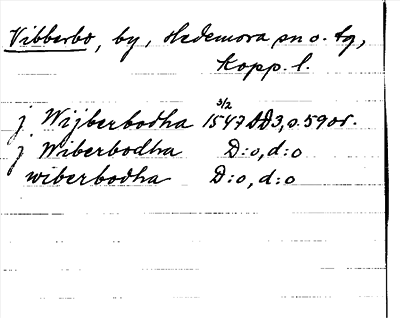 Vibberbo, by, Hedemora sn o. tg,
Kopp. l.
3/2
j Wijberbodha 1547 DD3, o. 590r.
j Wiberbodha D:o, d:o
wiberbodha D:o, d:o